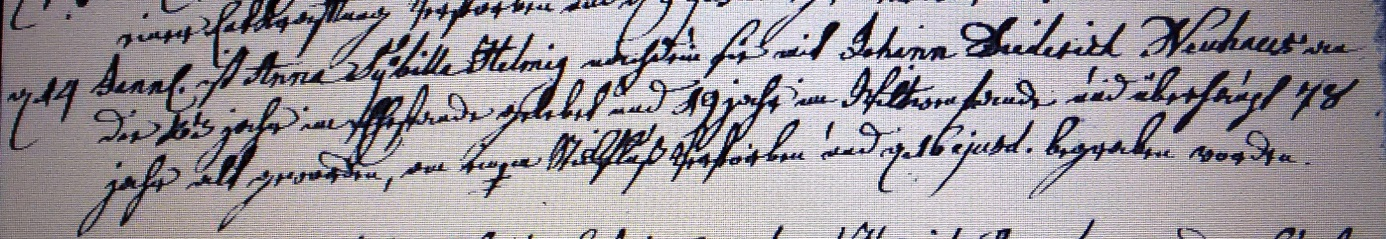 verstorben und
d. 14 Januar. ist Anna Sÿbilla Helmig nachdem sie mit Johann Diederich Neuhaus in
die jahr im Ehestande gelebet und 19 jahr im Wittwenstande und überhaupt 78
jahr alt geworden, an einem Stickfluß verstorben und d. 16 ejusd. begraben worden.